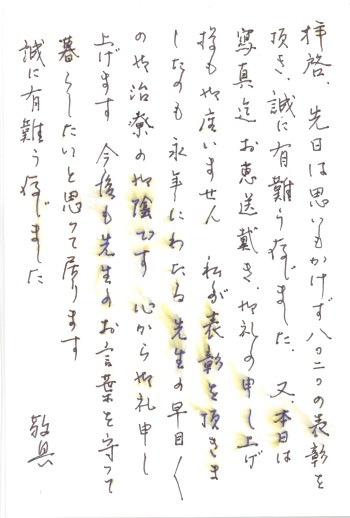 拝啓、先日は思いもかけず八〇二〇の表彰を
頂き、誠に有難う存じました、又、本日は
寫真迄お恵送戴き、御礼の申し上げ
様も御座いません 私が表彰を頂きま
したのも永年にわたる先生の早目く
の御治療の御陰です 心から御礼申し
上げます 今後も先生のお言葉を守って
暮らしたいと思って居ります
誠に有難う存じました
敬具